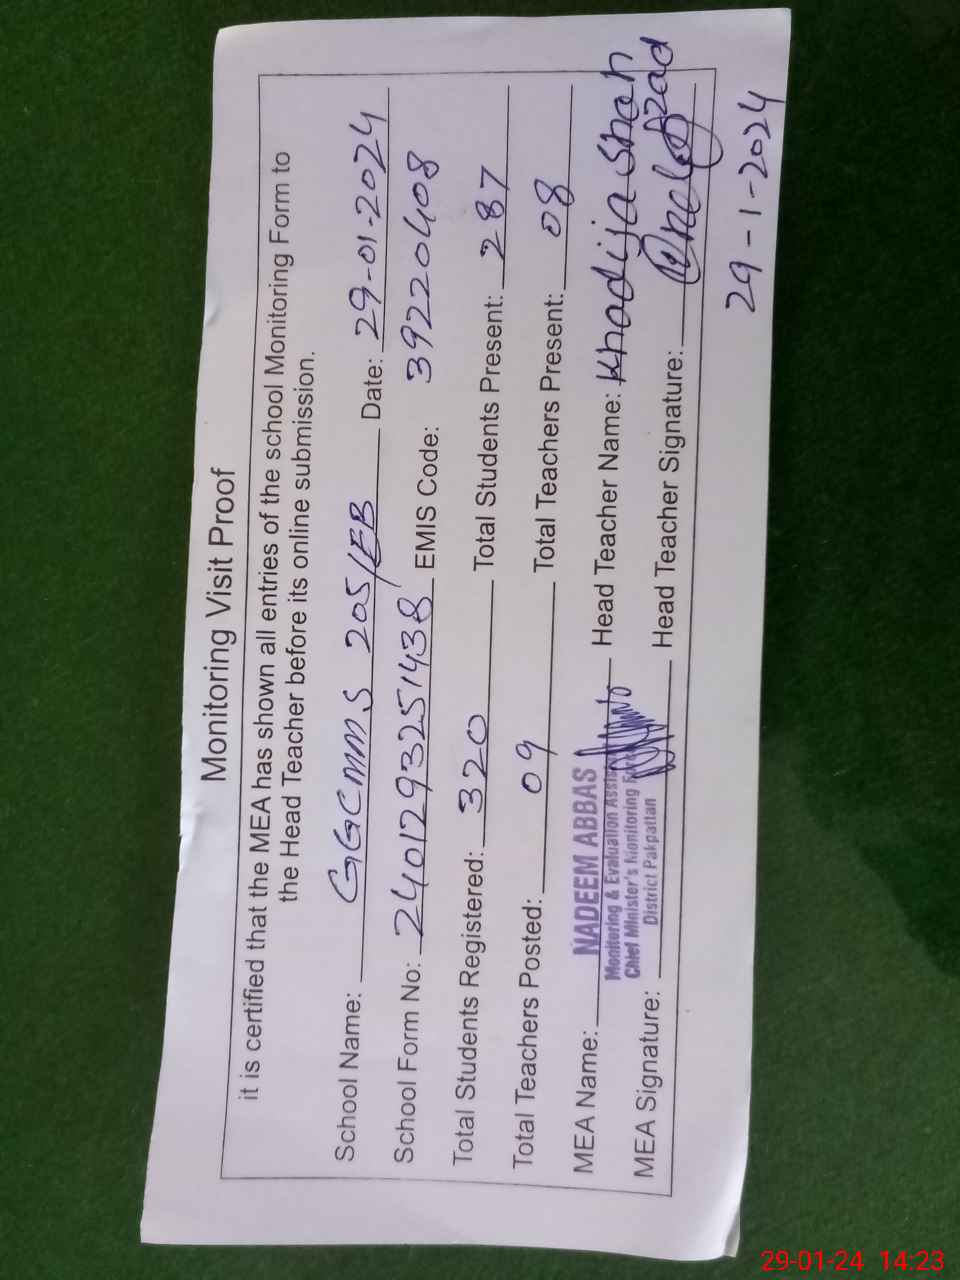 Monitoring Visit Proof
it is certified that the MEA has shown all entries of the school Monitoring Form to
the Head Teacher before its online submission.
School Name: GGCMMS 205/EB Date: 29-01-2024
School Form No: 2401293251438 EMIS Code: 39220408
Total Students Registered: 320 Total Students Present: 287
Total Teachers Posted: 09 Total Teachers Present: 08
MEA Name: NADEEM ABBAS Head Teacher Name: Khadija Shah
Monitoring & Evaluation
Chief Minister's Monitoring
District Pakpattan
MEA Signature: Head Teacher Signature:
29-1-2024
29-01-24 14:23